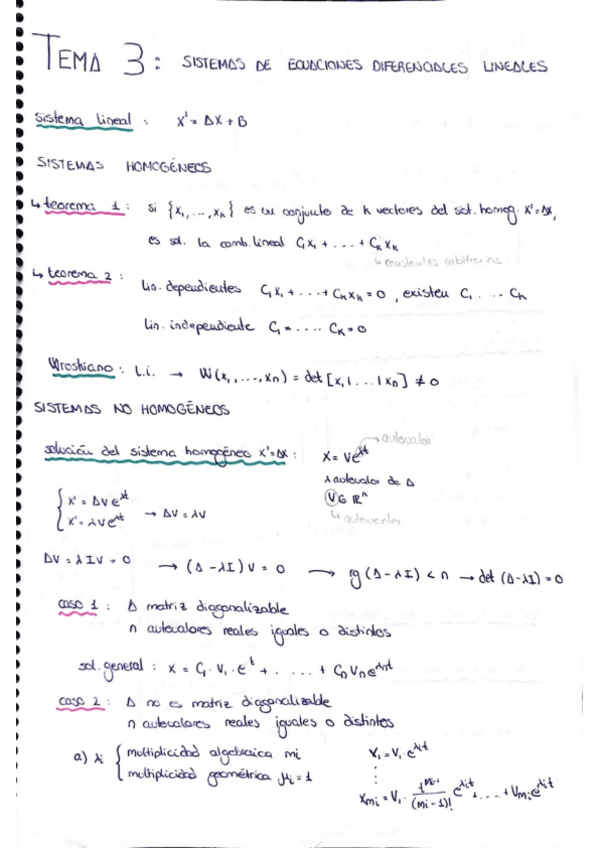 TEMA 3: SISTEMAS DE ECUACIONES DIFERENCIALES LINEALES
sistema lineal : X' = AX + B
SISTEMAS HOMOGÉNEOS
↳ teorema 1 : si {X₁, ..., Xₖ} es un conjunto de k vectores del sist. homeg. X' = AX,
es sol. la comb. lineal C₁X₁ + ... + CₖXₖ
↳ constantes arbitrarias
↳ teorema 2 :
Lin. dependientes C₁X₁ + ... + CₖXₖ = 0, existen C₁ ... Cₖ
Lin. independiente C₁ = .... Cₖ = 0
Wroskiano : L.i. → W(x₁, ..., xₙ) = det [x₁ | ... | xₙ] ≠ 0
SISTEMAS NO HOMOGÉNEOS
→ autovalor
solución del sistema homogéneo X' = AX : X = Ve^λt
λ autovalor de A
V ∈ ℝⁿ
↳ autovector
{ X' = AVe^λt
X' = λVe^λt → AV = λV
AV = λIV = 0 → (A - λI)V = 0 → rg (A - λI) < n → det (A - λI) = 0
caso 1 : A matriz diagonalizable
n autovalores reales iguales o distintos
sol. general : X = C₁ · V₁ · e^t + .... + CₙVₙe^λnt
caso 2 : A no es matriz diagonalizable
n autovalores reales iguales o distintos
a) λi { multiplicidad algebraica mi X₁ = V₁ · e^λit
multiplicidad geométrica μi = 1 ⋮
Xmi = V₁ · t^mi-1/(mi - 1)! e^λit + ... + Vmi e^λit